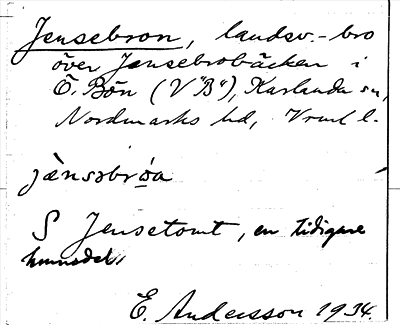 Jensebron, landsv.-bro
över Jensebrobäcken i
Ö. Bön (V "B"), Karlanda sn,
Nordmarks hd, Vrml l.
jènsəbrǫ̀a
S Jensetomt, en tidigare
E. Andersson 1934.